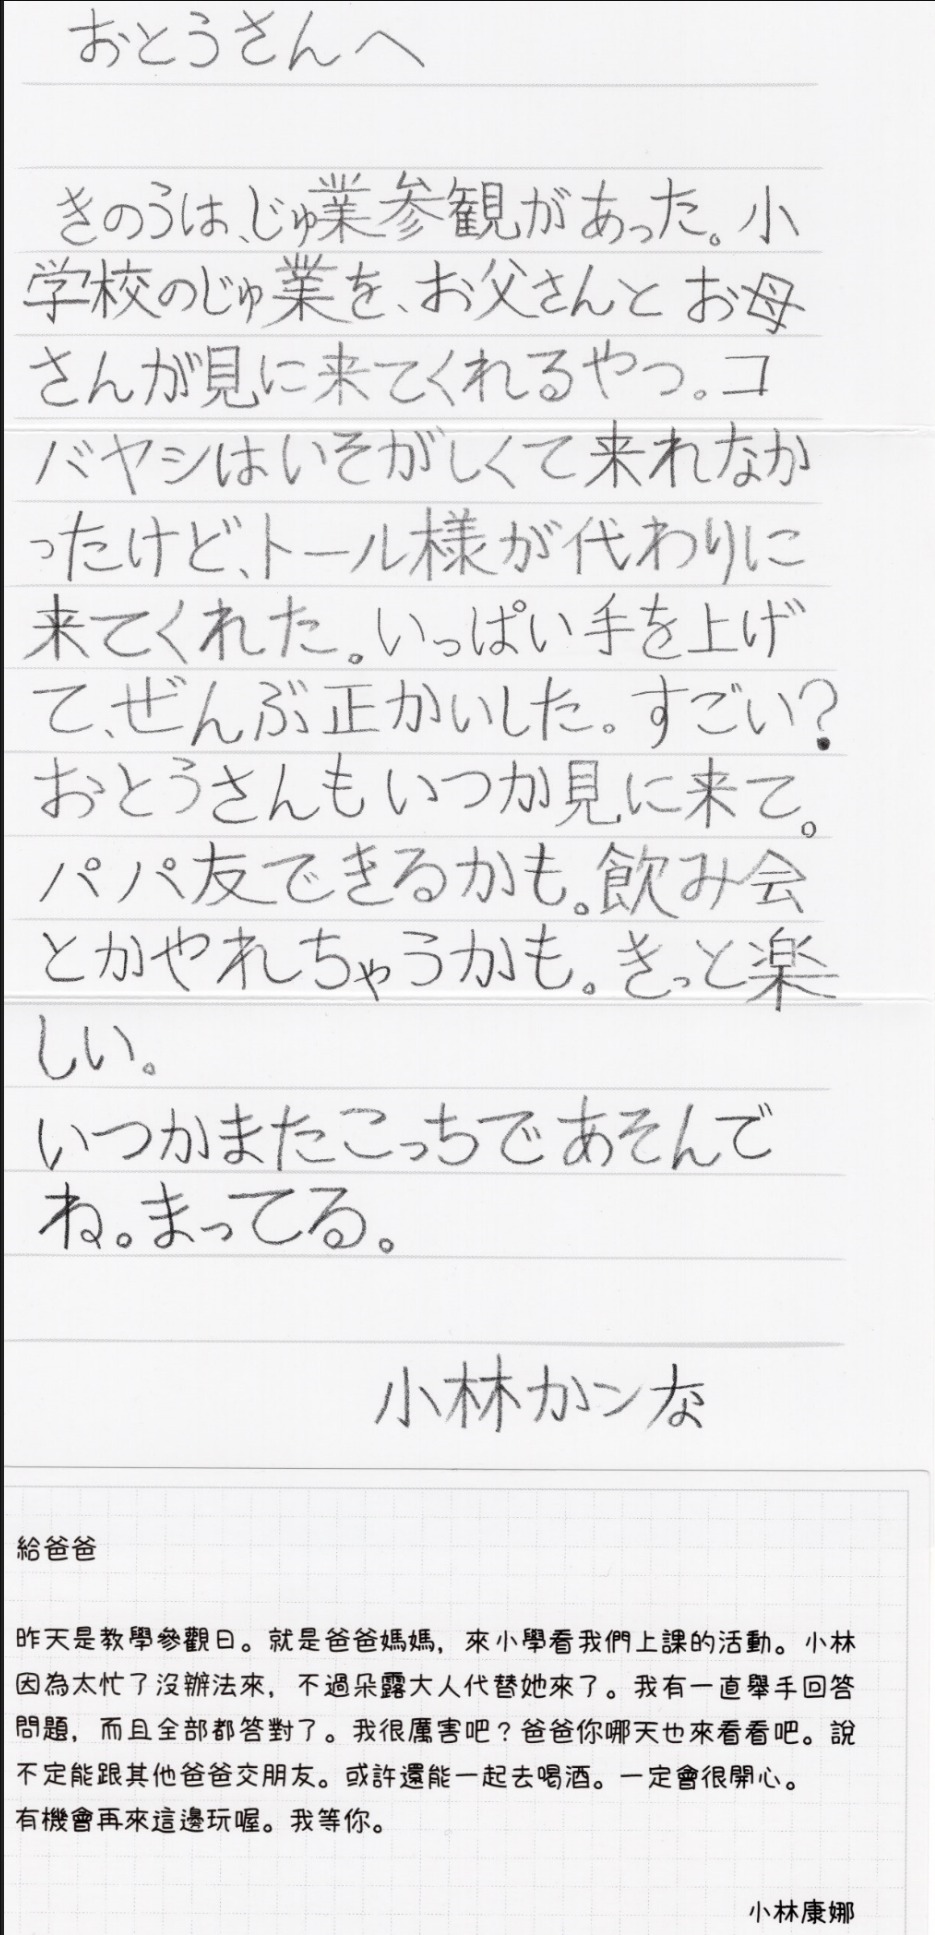 おとうさんへ
きのうは、じゅ業参観があった。小
学校のじゅ業を、お父さんとお母
さんが見に来てくれるやつ。コ
バヤシはいそがしくて来れなか
ったけど、トール様が代わりに
来てくれた。いっぱい手を上げ
て、ぜんぶ正かいした。すごい?
おとうさんもいつか見に来て。
パパ友できるかも。飲み会
とかやれちゃうかも。きっと楽
しい。
いつかまたこっちであそんで
ね。まってる。
小林カンな
給爸爸
昨天是教學參觀日。就是爸爸媽媽，來小學看我們上課的活動。小林
因為太忙了沒辦法來，不過朵露大人代替她來了。我有一直舉手回答
問題，而且全部都答對了。我很厲害吧？爸爸你哪天也來看看吧。說
不定能跟其他爸爸交朋友。或許還能一起去喝酒。一定會很開心。
有機會再來這邊玩喔。我等你。
小林康娜